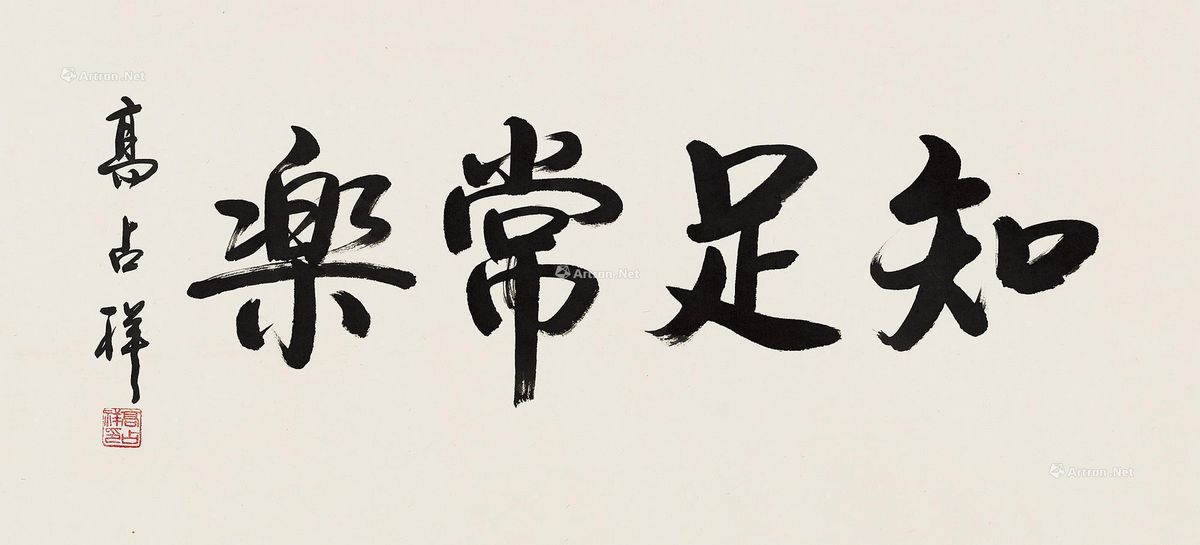 知足常樂
高占祥
高占祥印
Artron.Net
Artron.Net
Artron.Net